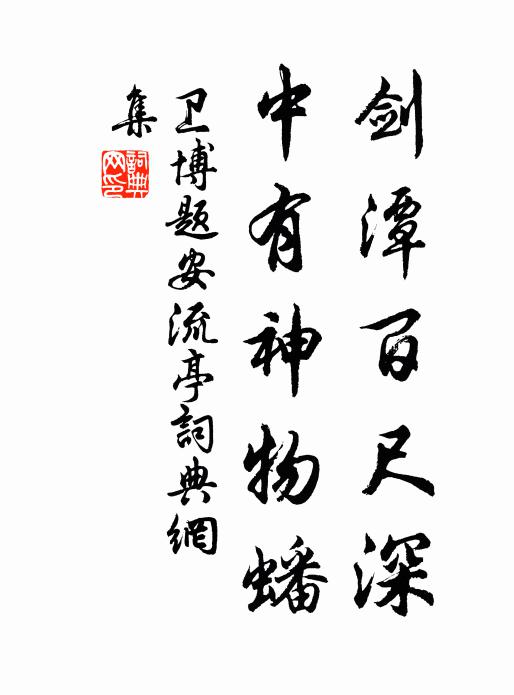 剑潭百尺深
中有神物蟠
卫博题安流亭詞典網
集
詞典
网印